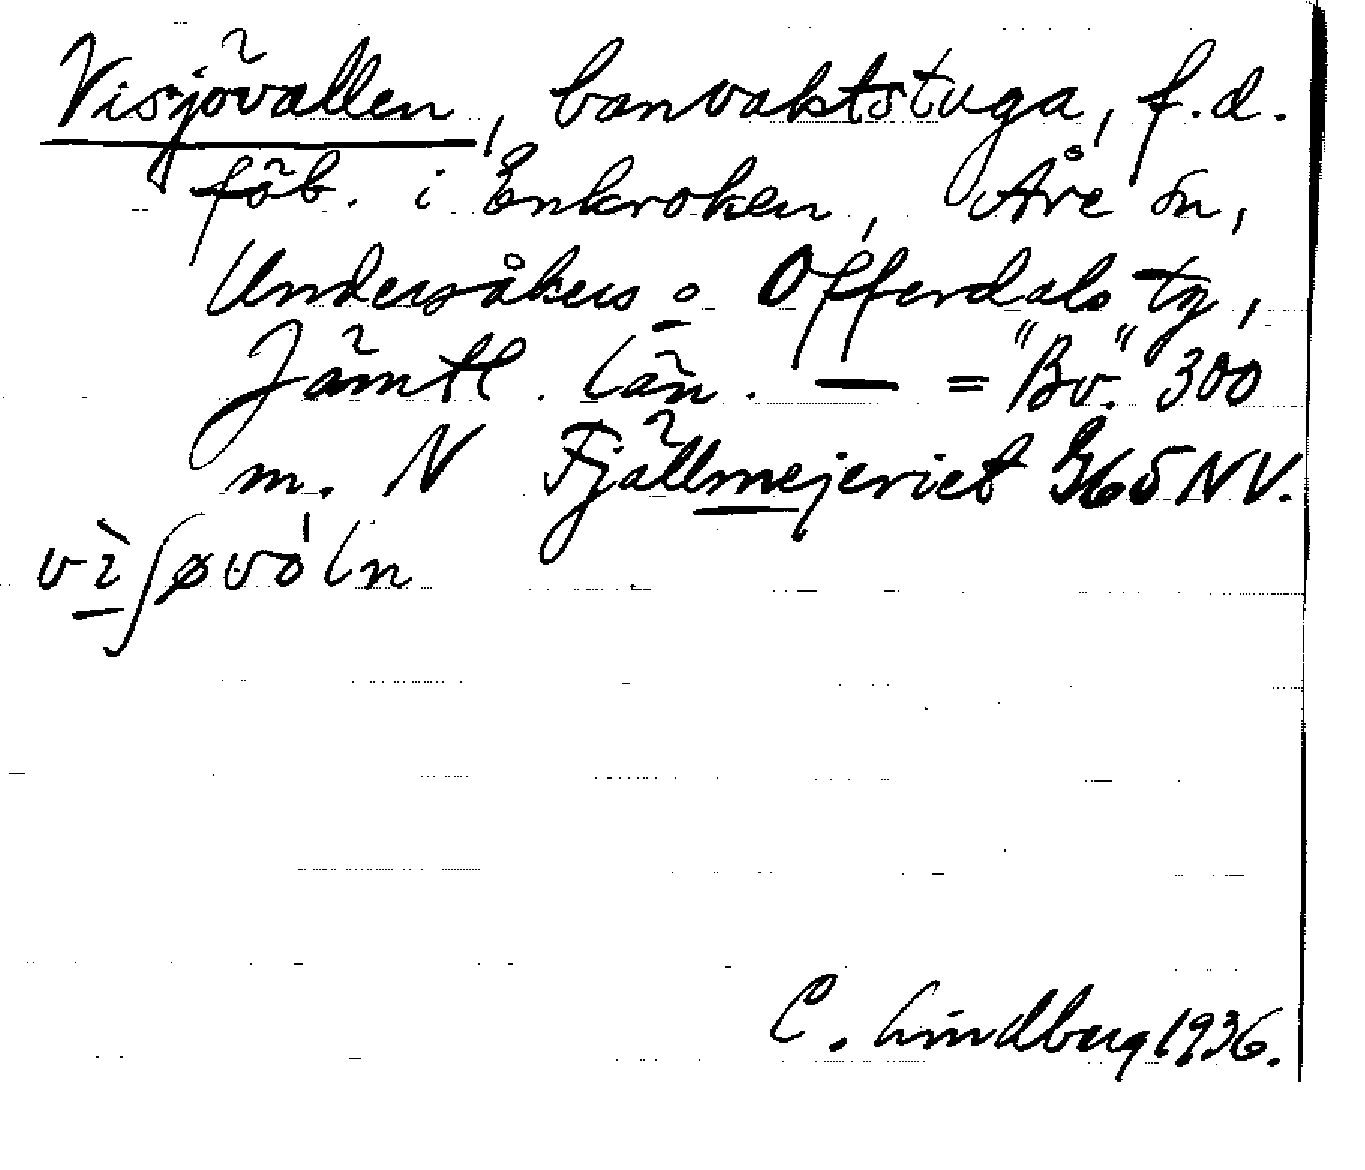 Visjövallen, banvaktstuga, f.d.
fäb. i Enkroken, Åre sn,
Undersåkers o Offerdals tg,
Jämtl. län. — = "Bv." 300
m. N Fjällmejeriet G65NV.
C. Lindberg 1936.